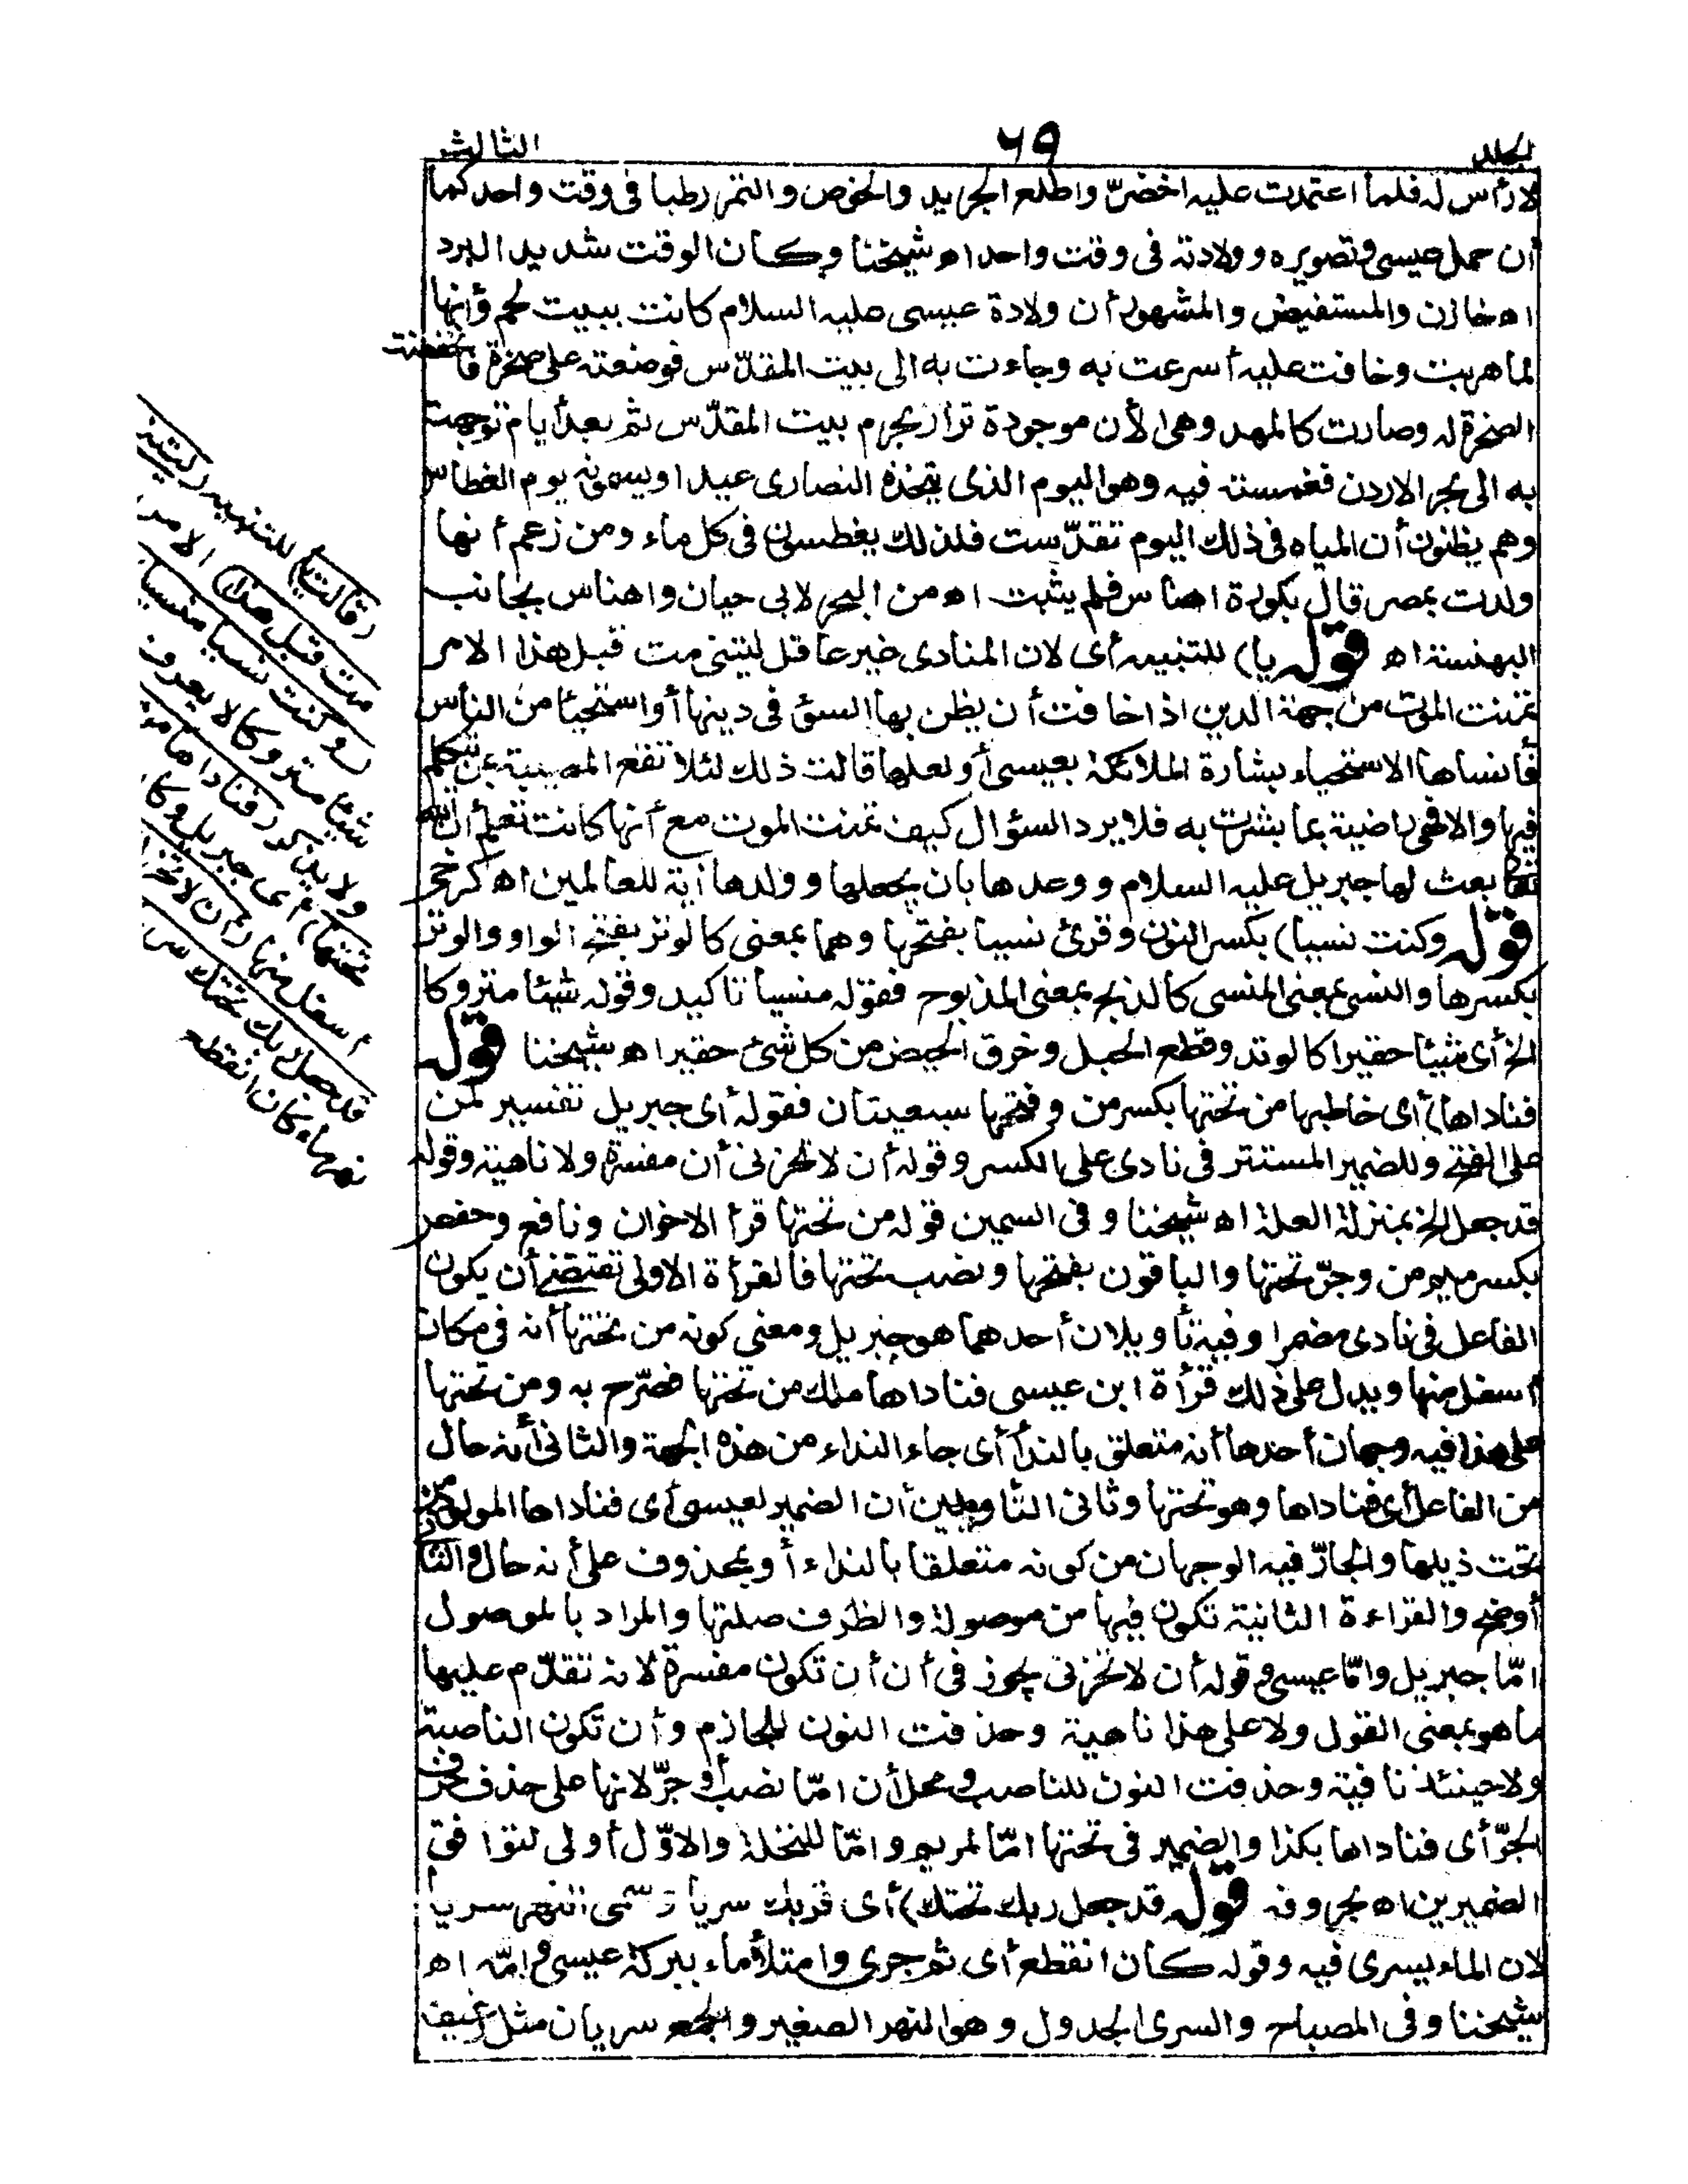 المجلد ٦٩ الثالث
لا رأس له فلما اعتمدت عليه اخضرّ واطلع الجريد والخوص والتمر رطبا فى وقت واحد كما
أن حمل عيسى وتصويره وولادته فى وقت واحد اه شيخنا وكان الوقت شديد البرد
اه خازن والمستفيض والمشهور أن ولادة عيسى عليه السلام كانت ببيت لحم وأنها
لما هربت وخافت عليه أسرعت به وجاءت به الى بيت المقدّس فوضعته على صخرة فانخفضت
الصخرة له وصارت كالمهد وهى الأن موجودة تزار بحرم بيت المقدّس ثم بعد أيام توجهت
به الى بحر الاردن فغمسته فيه وهو اليوم الذى يتخذه النصارى عيدا ويسمونه يوم الغطاس
وهم يظنون أن المياه فى ذلك اليوم تقدّست فلذلك يغطسون فى كل ماء ومن زعم أنها
ولدت بمصر قال بكورة اهناس فلم يثبت اه من البحر لابى حيان واهناس بجانب
البهنسة اه قوله يا) للتنبيه أى لان المنادى غير عاقل ليتنى مت قبل هذا الامر
تمنت الموت من جهة الدين اذا خافت أن يظن بها السوء فى دينها أو استحيا من الناس
فأنساها الاستحياء بشارة الملائكة بعيسى أو لعلها قالت ذلك لئلا تقع المصيبة عن يتكلم
فيها والا فهى راضية بما بشرت به فلا يرد السؤال كيف تمنت الموت مع أنها كانت تعلم أن الله
تعالى بعث لها جبريل عليه السلام ووعدها بان يجعلها وولدها آية للعالمين اه كرخى
قوله وكنت نسيا) بكسر النون وقرئ نسيا بفتحها وهما بمعنى كالوتر بفتح الواو والوتر
بكسرها والنسى بمعنى المنسى كالذبح بمعنى المذبوح فقوله منسيا تاكيد وقوله شيئا متروكا
الخ أى شيئا حقيرا كالوتد وقطع الحبل وخرق الحيض من كل شئ حقير اه شيخنا قوله
فناداها) أى خاطبها من تحتها بكسر من وفتحها سبعيتان فقوله أى جبريل تفسير لمن
على الفتح وللضمير المستتر فى نادى على الكسر وقوله أن لا تحزنى أن مفسرة ولا ناهية وقوله
قد جعل الخ بمنزلة العلة اه شيخنا وفى السمين قوله من تحتها قرأ الاخوان ونافع وحفص
بكسر ميم من وجرّ تحتها والباقون بفتحها ونصب تحتها فالقرأة الاولى تقتضى أن يكون
الفاعل فى نادى مضمرا وفيه تأويلان أحدهما هو جبريل ومعنى كونه من تحتها أنه فى مكان
أسفل منها ويدل على ذلك قرأة ابن عيسى فناداها ملك من تحتها فصّرح به ومن تحتها
على هذا فيه وجهان أحدها أنه متعلق بالندأ أى جاء النداء من هذه الجهة والثانى أنه حال
من الفاعل أى فناداها وهو تحتها وثانى التأويلين أن الضمير لعيسى أى فناداها المولود من
تحت ذيلها والجارّ فيه الوجهان من كونه متعلقا بالنداء أو بمحذوف على أنه حال والثانى
أوضح والقراءة الثانية تكون فيها من موصولة والظرف صلتها والمراد بالموصول
امّا جبريل وامّا عيسى وقوله أن لا تحزنى يجوز فى أن أن تكون مفسرة لانه تقدّم عليها
ما هو بمعنى القول ولا على هذا ناهية وحذفت النون للجازم وأن تكون الناصبة
ولا حينئذ نافية وحذفت النون للناصب ومحل أن امّا نصب أو جرّ لانها على حذف حرف
الجرّ أى فناداها بكذا والضمير فى تحتها امّا لمريم وامّا للنخلة والاوّل أولى لتوافق
الضميرين اه بحروفه قوله قد جعل ربك تحتك) أى قربك سريا وسمى النهر سريا
لان الماء يسرى فيه وقوله كان انقطع أى ثم جرى وامتلأ ماء ببركة عيسى وامّه اه
شيخنا وفى المصباح والسرى الجدول وهو النهر الصغير والجمع سريان مثل رغيف
رقالت يا) للتنبيه (ليتنى
مت قبل هذا) الامر
(وكنت نسيا منسيا)
شيئا متروكا لا يعرف
ولا يذكر (فناداها من
تحتها) أى جبريل وكان
أسفل منها (أن لا تحزنى
قد جعل ربك تحتك سريا)
نهر ماء كان انقطع